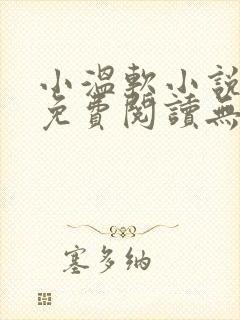 小溫軟小說
免費閱讀無
塞多納